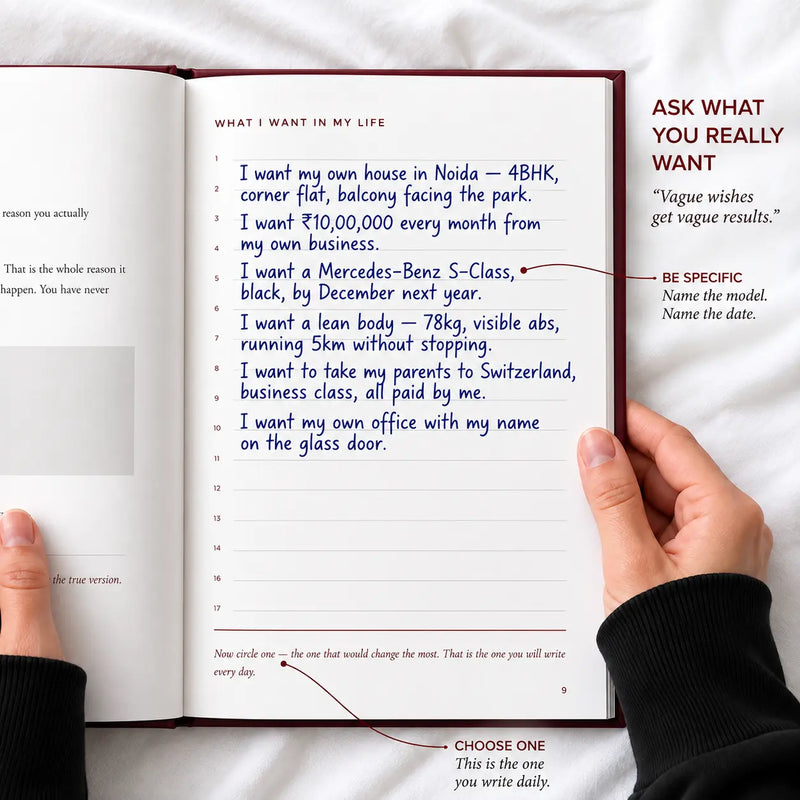 reason you actually
That is the whole reason it
happen. You have never
the true version.
WHAT I WANT IN MY LIFE
1
I want my own house in Noida — 4BHK,
2
corner flat, balcony facing the park.
3
I want ₹10,00,000 every month from
4
my own business.
5
I want a Mercedes-Benz S-Class,
black, by December next year.
6
I want a lean body — 78kg, visible abs,
7
running 5km without stopping.
8
I want to take my parents to Switzerland,
9
business class, all paid by me.
10
I want my own office with my name
on the glass door.
11
12
13
14
16
17
Now circle one — the one that would change the most. That is the one you will write
every day.
9
ASK WHAT
YOU REALLY
WANT
“Vague wishes
get vague results.”
BE SPECIFIC
Name the model.
Name the date.
CHOOSE ONE
This is the one
you write daily.